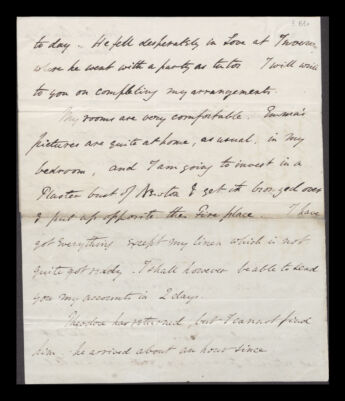 to day. He fell desperately in Love at Inverness
where he went with a party as tutor I will write
to you on completing my arrangements.
My rooms are very comfortable. Emma's
pictures are quite at home, as usual, in my
bedroom, and I am going to invest in a
Plaster bust of Newton & get it bronzed over
& put up opposite the Fire place. I have
got everything except my linen which is not
quite ready. I shall however be able to send
you my accounts in 2 days.
Theodore has returned, but I cannot find
him he arrived about an hour since